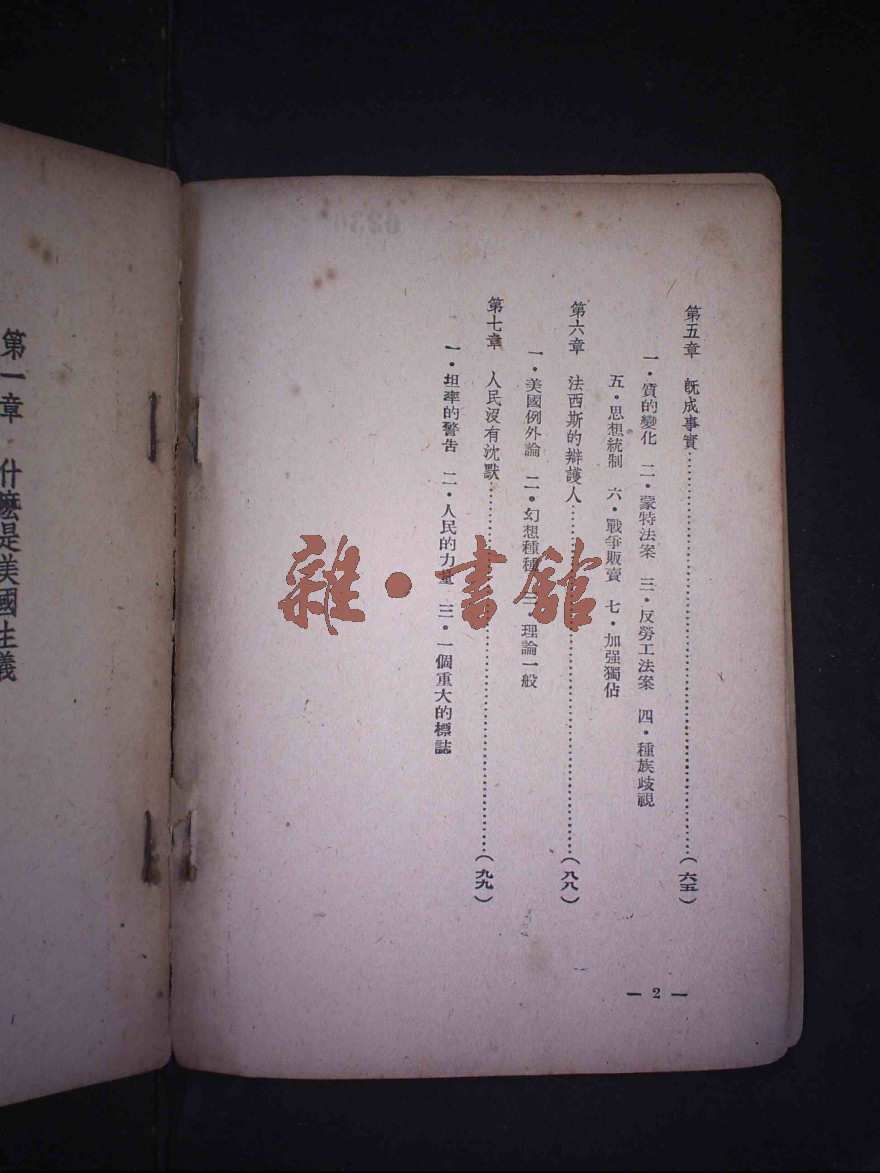 第五章　既成事實……………………（六五）
一・質的變化　二・蒙特法案　三・反勞工法案　四・種族歧視
五・思想統制　六・戰爭販賣　七・加强獨佔
第六章　法西斯的辯護人……………………（八八）
一・美國例外論　二・幻想種種　三・理論一般
第七章　人民沒有沈默……………………（九九）
一・坦率的警告　二・人民的力量　三・一個重大的標誌
— 2 —
第一章　什麽是美國主義
雜・書館